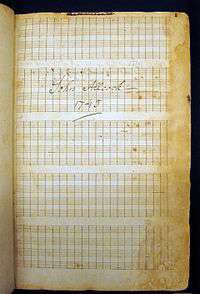 John Alcock
1745